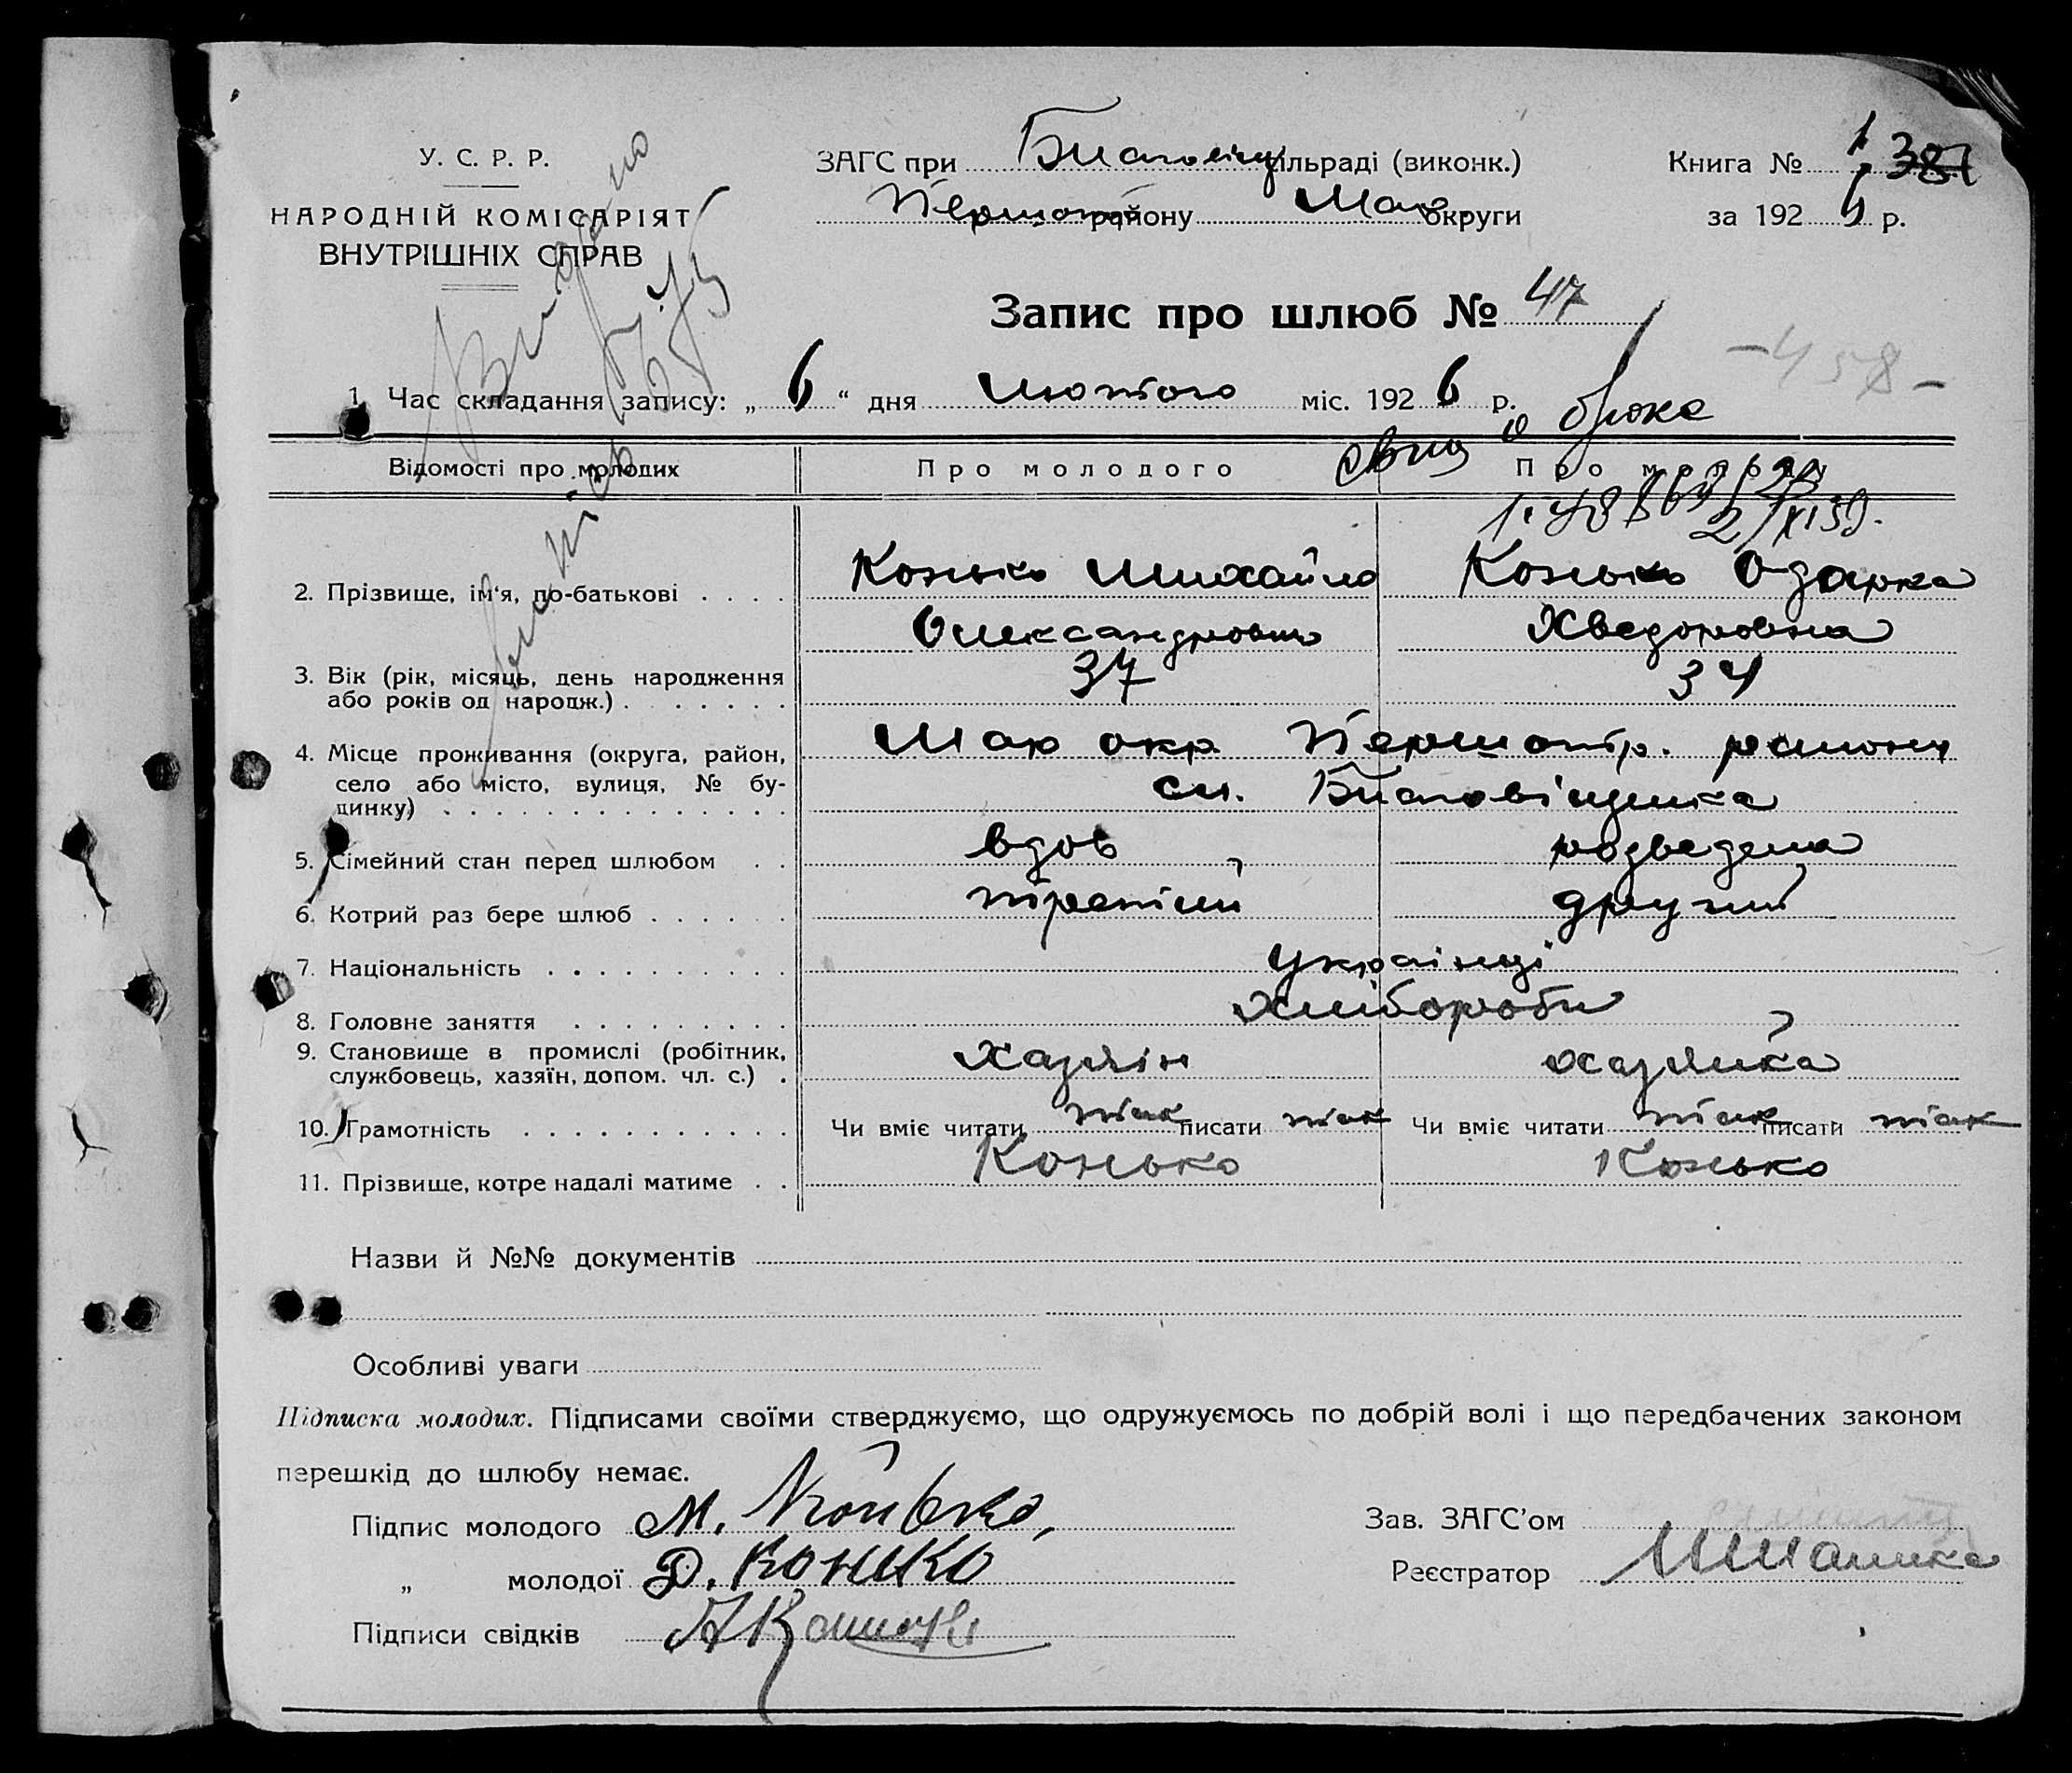 У. С. Р. Р.
НАРОДНІЙ КОМІСАРІЯТ
ВНУТРІШНІХ СПРАВ
ЗАГС при сільраді (виконк.)
району округи
Книга № 1
за 192 6 р.
Видано
Запис про шлюб № 47
- 458 -
1. Час складання запису: „ 6 “ дня лютого міс. 192 6 р.
о браке
Відомості про молодих Про молодого Про молоду
2/XI 39.
2. Прізвище, ім'я, по-батькові . . . . Конько Михайло Конько Одарка
Олександрович Хведоровна
3. Вік (рік, місяць, день народження 37 34
або років од народж.) . . . . . . .
4. Місце проживання (округа, район, Мар окр. Першотр. району
село або місто, вулиця, № бу- с. Благовіщенка
динку) . . . . . . . . . . . . . .
5. Сімейний стан перед шлюбом . . вдов розведена
6. Котрий раз бере шлюб . . . . . . третій другий
7. Національність . . . . . . . . . . українці
8. Головне заняття . . . . . . . . . Хлібороби
9. Становище в промислі (робітник, хазяїн хазяйка
службовець, хазяїн, допом. чл. с.) .
10. Грамотність . . . . . . . . . . . Чи вміє читати так писати так Чи вміє читати так писати так
11. Прізвище, котре надалі матиме . . Конько Конько
Назви й №№ документів
Особливі уваги
Підписка молодих. Підписами своїми стверджуємо, що одружуємось по добрій волі і що передбачених законом
перешкід до шлюбу немає.
Підпис молодого М. Конько
„ молодої Д. Конько
Підписи свідків
Зав. ЗАГС'ом
Реєстратор